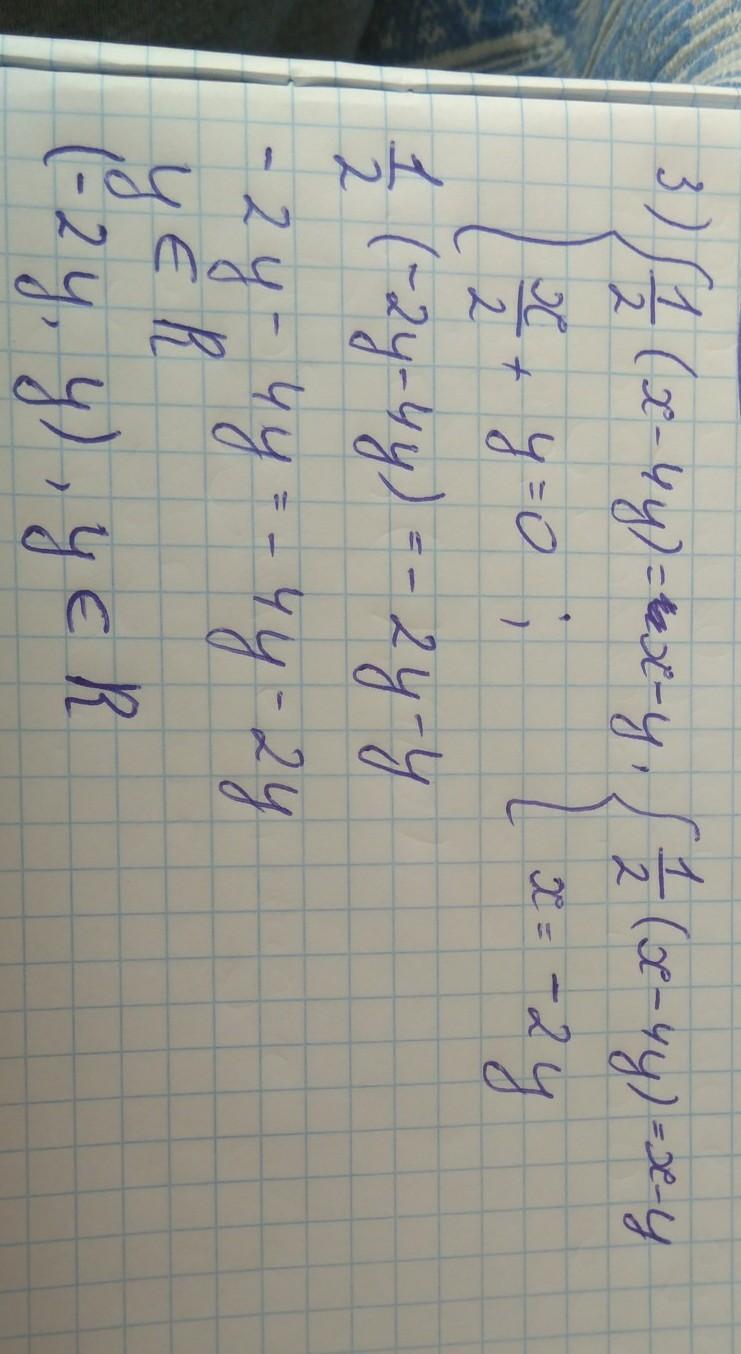 3) { 1/2 (x - 4y) = x - y, { 1/2 (x - 4y) = x - y
x/2 + y = 0 ; x = -2y
1/2 (-2y - 4y) = -2y - y
-2y - 4y = -4y - 2y
y ∈ R
(-2y, y), y ∈ R